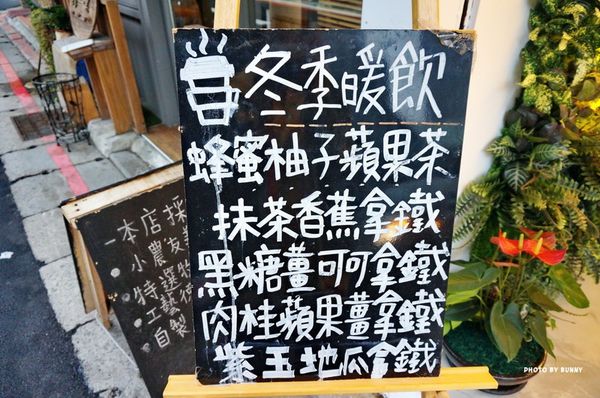 冬季暖飲
蜂蜜柚子蘋果茶
抹茶香蕉拿鐵
黑糖薑可可拿鐵
肉桂蘋果薑拿鐵
紫玉地瓜拿鐵
一本店採
小農友善
特選
工藝
自製
PHOTO BY BUNNY